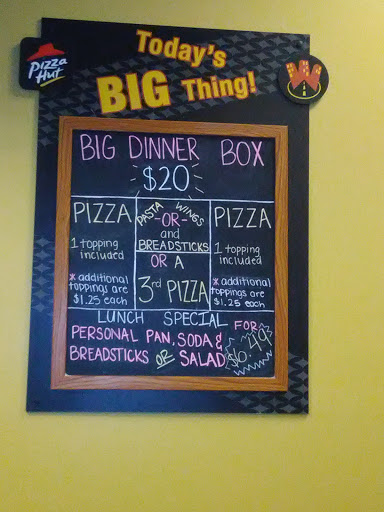 Pizza
Hut
Today's
BIG Thing!
BIG DINNER BOX
$20
PIZZA
1 topping
included
* additional
toppings are
$1.25 each
PASTA WINGS
-OR-
and
BREADSTICKS
OR A
3rd PIZZA
PIZZA
1 topping
included
* additional
toppings are
$1.25 each
LUNCH SPECIAL FOR
PERSONAL PAN, SODA &
BREADSTICKS OR SALAD
$6.49